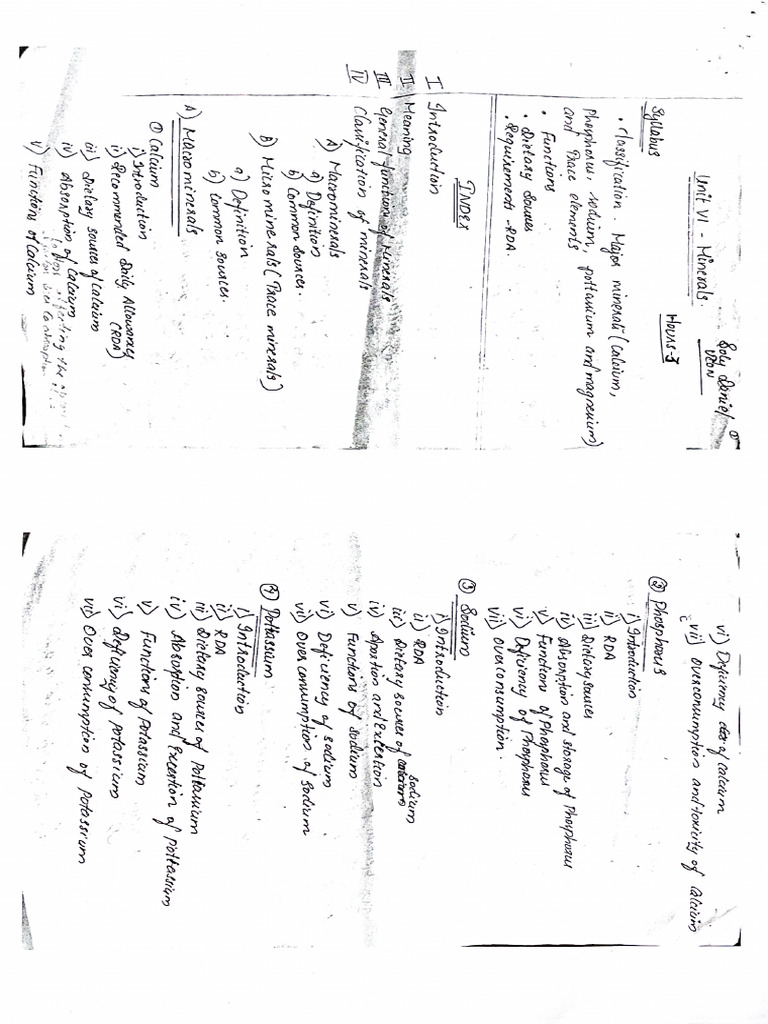 Soly Daniel
Unit VI - Minerals.
Hours-3
Syllabus
• Classification. Major minerals (calcium,
Phosphorus. sodium, pottassium and magnesium)
and Trace elements
• Functions
• Dietary Sources
• Requirements -RDA.
INDEX
I Introduction
II Meaning
III General functions of Minerals
IV Classification of minerals
A) Macrominerals
a) Definition
b) Common Sources.
B) Micro minerals (Trace minerals)
a) Definition
b) Common Sources.
A) Macrominerals
① Calcium
i) Introduction
ii) Recommended Daily Allowances
(RDA)
iii) Dietary sources of calcium
iv) Absorption of Calcium
affecting the
v) Functions of Calcium
vi) Deficiency of calcium
vii) Overconsumption and toxicity of Calcium
② Phosphorus
i) Introduction
ii) RDA
iii) Dietary sources
iv) Absorption and storage of Phosphorus
v) Functions of Phosphorus
vi) Deficiency of Phosphorus
vii) Overconsumption.
③ Sodium
i) Introduction
ii) RDA
iii) Dietary sources of sodium
iv)
v) Functions of sodium
vi) Deficiency of sodium
vii) Over consumption of sodium
④ Pottassium
i) Introduction
ii) RDA
iii) Dietary sources of Pottassium
iv) Absorption and Excretion of Pottassium
v) Functions of Potassium
vi) Deficiency of Potassium
vii) Over consumption of Potassium